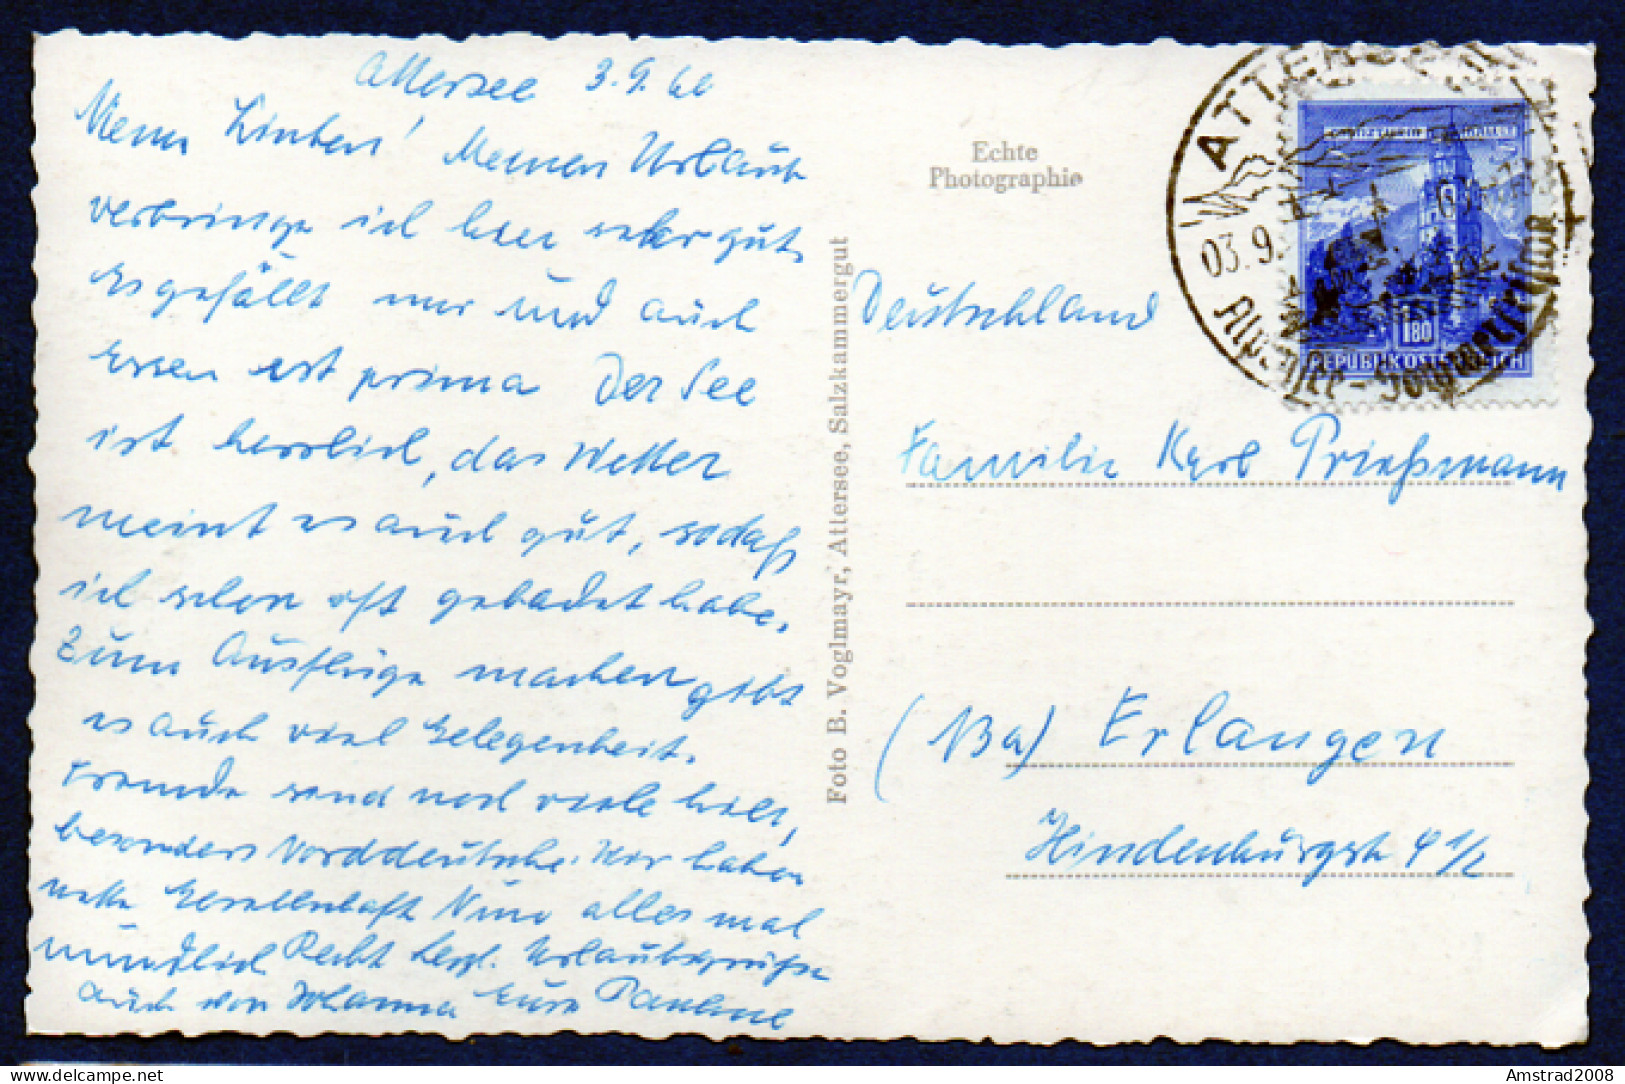 Attersee 3.9.60
Meine Lieben! Meinen Urlaub
verbringe ich hier sehr gut.
Es gefällt mir und auch
Essen ist prima Der See
ist herrlich, das Wetter
meint es auch gut, sodaß
ich schon oft gebadet habe.
Zum Ausflüge machen gibt
es auch viel Gelegenheit.
Fremde sind noch viele hier,
besonders Norddeutsche. Wir haben
nette Gesellschaft Nun alles mal
mündlich Recht herzl. Urlaubsgrüße
auch von Johanna Eure
Echte
Photographie
Foto B. Voglmayr, Attersee, Salzkammergut
ATTERSEE
03.9.
Alpenseer-Sommerfrische
180
REPUBLIK OSTERREICH
Deutschland
Familie Karl Prießmann
(13a) Erlangen
Hindenburgstr 4 1/2
Amstrad2008